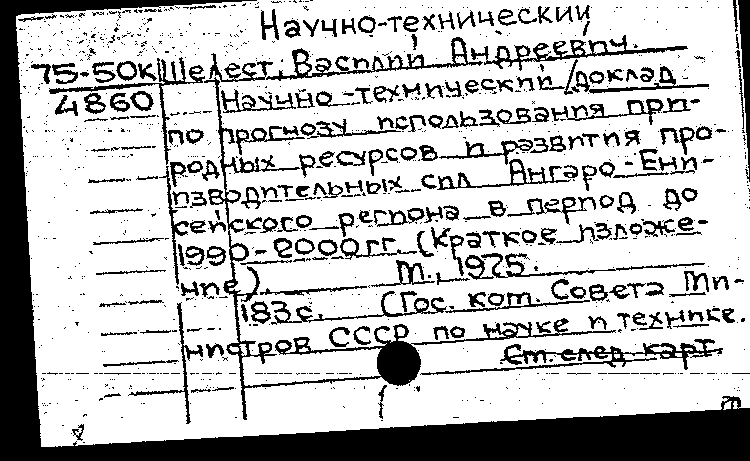 Научно-технический
75-50к Шелест, Василий Андреевич.
4860 Научно-технический доклад
по прогнозу использования при-
родных ресурсов и развития про-
изводительных сил Ангаро-Ени-
сейского региона в период до
1990-2000гг. (Краткое изложе-
ние). М., 1975.
183с. (Гос. ком. Совета Ми-
нистров СССР по науке и технике.
См. след. карт.